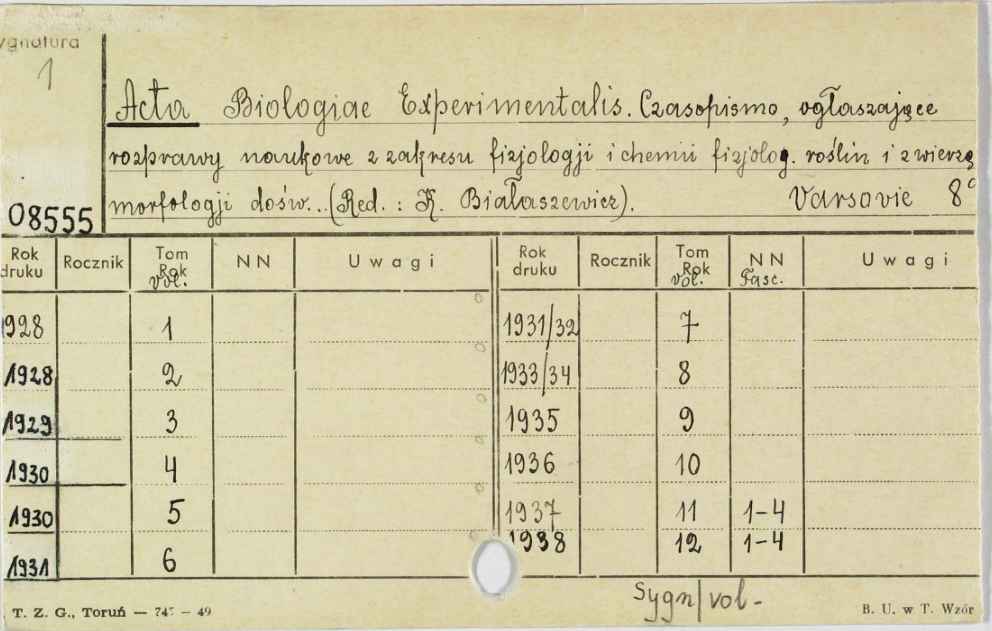 ygnatura
1
Acta Biologiae Experimentalis. Czasopismo, ogłaszające
rozprawy naukowe z zakresu fizjologji i chemii fizjolog. roślin i zwierzą
morfologji dośw... (Red. : K. Białaszewicz). Varsovie 8°
08555
Rok druku Rocznik Tom Rok vol. NN Uwagi Rok druku Rocznik Tom Rok vol. NN Fasc. Uwagi
1928 1 1931/32 7
1928 2 1933/34 8
1929 3 1935 9
1930 4 1936 10
1930 5 1937 11 1-4
1938 12 1-4
1931 6
Sygn/vol-
T. Z. G., Toruń — 49
B. U. w T. Wzór